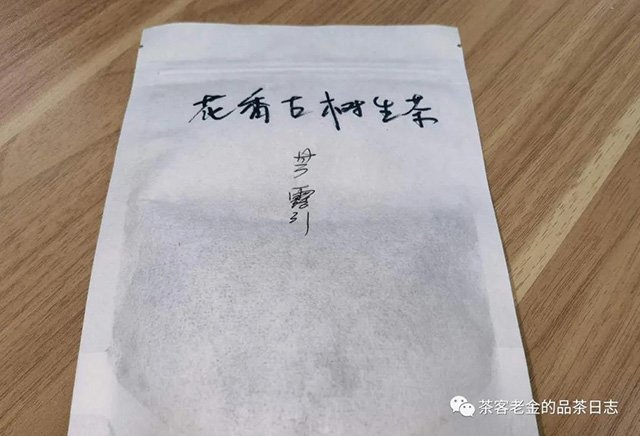 花香古树生茶
露引
茶客老金的品茶日志